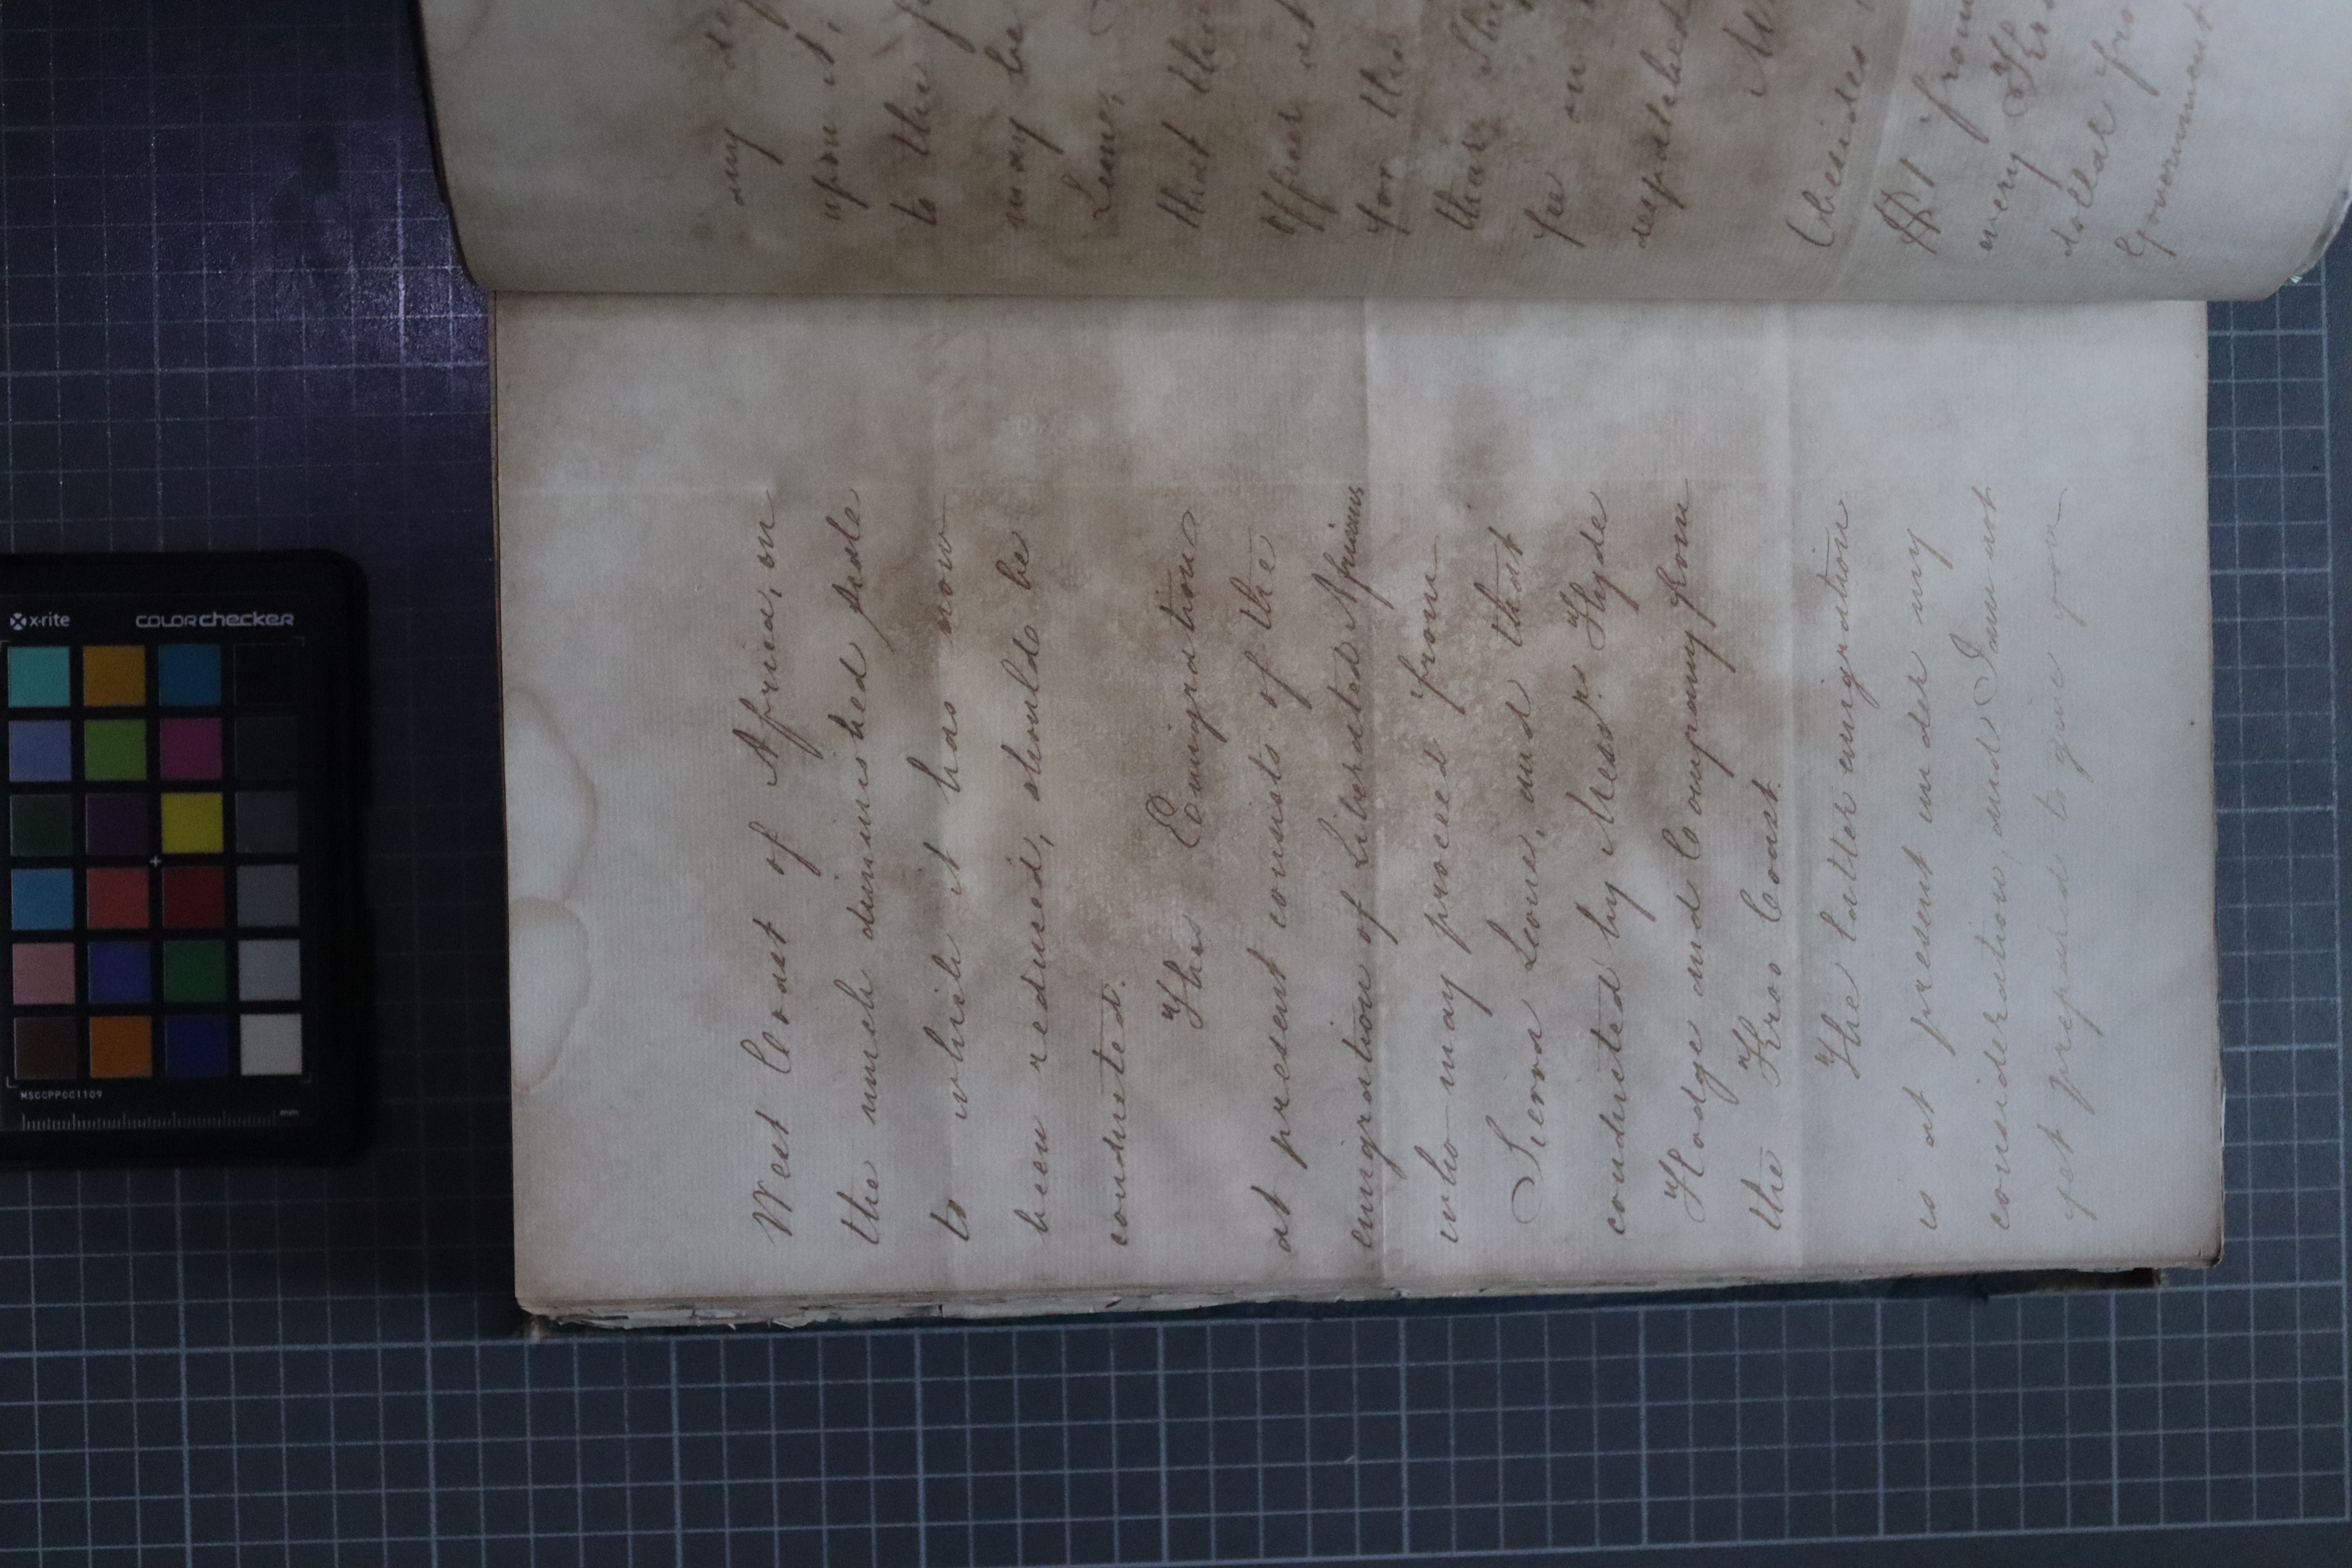 West Coast of Africa, on
the much diminished scale
to which it has now
been reduced, should be
conducted.
The Emigration
at present consists of the
emigration of Liberated Africans
who may proceed from
Sierra Leone, and that
conducted by Messrs. Hyde
Hodge and Company from
the Kroo Coast.
The latter emigration
is at present under my
consideration, and I am not
yet prepared to give you
my
upon it,
to the
may be
Leone,
that the
Officer
for the
their
fee on
despatched
(besides
$1 from
every
dollar
Government
x-rite
colorchecker
MSCCPPCC1109
mm